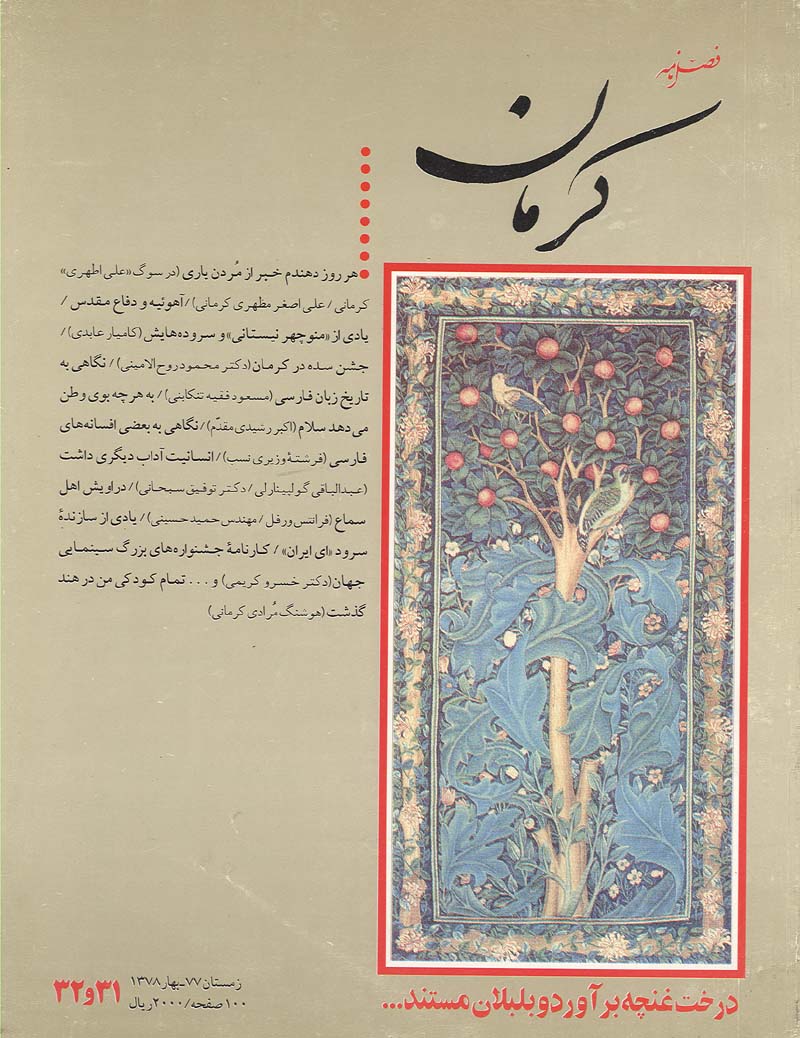 فصلنامه
کرمان
هر روز دهندم خبر از مُردن یاری (در سوگ «علی اطهری»
کرمانی / علی اصغر مظهری کرمانی) / آهوئیه و دفاع مقدس /
یادی از «منوچهر نیستانی» و سروده‌هایش (کامیار عابدی) /
جشن سده در کرمان (دکتر محمود روح الامینی) / نگاهی به
تاریخ زبان فارسی (مسعود فقیه تنکابنی) / به هر چه بوی وطن
می دهد سلام (اکبر رشیدی مقدّم) / نگاهی به بعضی افسانه‌های
فارسی (فرشتهٔ وزیری نسب) / انسانیت آداب دیگری داشت
(عبدالباقی گولپینارلی / دکتر توفیق سبحانی) / دراویش اهل
سماع (فرانتس ورفل / مهندس حمید حسینی) / یادی از سازندهٔ
سرود «ای ایران» / کارنامهٔ جشنواره‌های بزرگ سینمایی
جهان (دکتر خسرو کریمی) و . . . تمام کودکی من در هند
گذشت (هوشنگ مُرادی کرمانی)
درخت غنچه برآورد و بلبلان مستند...
زمستان ۷۷ـ بهار ۱۳۷۸
۱۰۰ صفحه / ۲۰۰۰ ریال
۳۱ و ۳۲